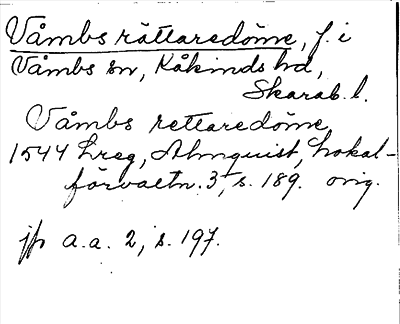 Våmbs rättaredöme, f. i
Våmbs sn, Kåkinds hd,
Skarab. l.
Våmbs rettaredöme
1544 hreg, Almquist, Lokal-
förvaltn. 3, s. 189. orig.
jfr a.a. 2, s. 197.